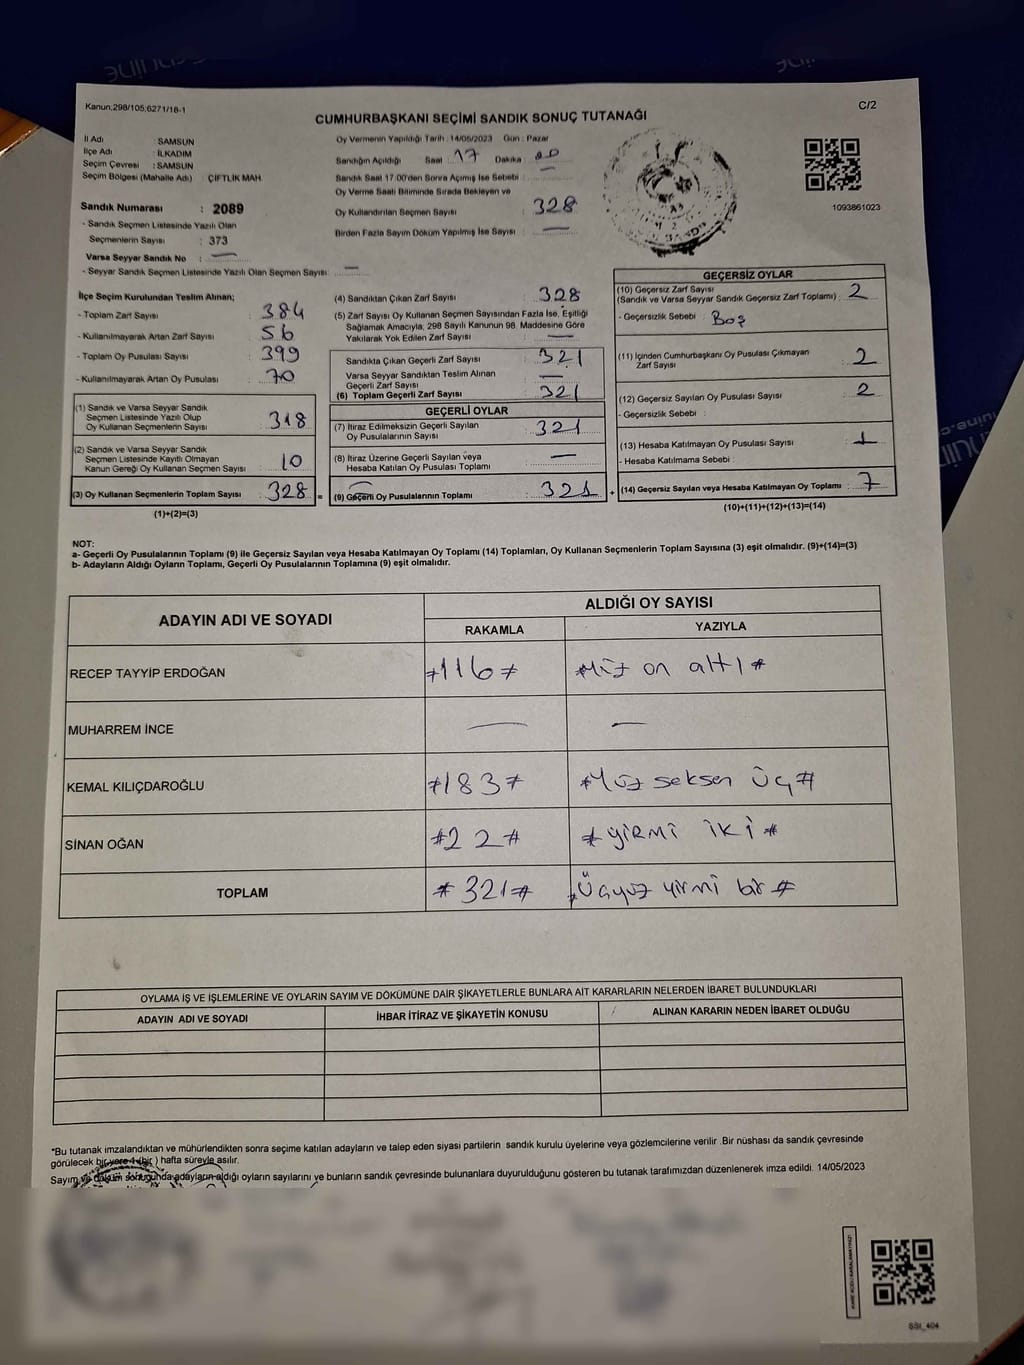 Kanun,298/105,6271/18-1
C/2
CUMHURBAŞKANI SEÇİMİ SANDIK SONUÇ TUTANAĞI
İl Adı SAMSUN
İlçe Adı : İLKADIM
Seçim Çevresi : SAMSUN
Seçim Bölgesi (Mahalle Adı) : ÇİFTLİK MAH.
Sandık Numarası : 2089
- Sandık Seçmen Listesinde Yazılı Olan
Seçmenlerin Sayısı : 373
Varsa Seyyar Sandık No : —
- Seyyar Sandık Seçmen Listesinde Yazılı Olan Seçmen Sayısı : —
Oy Vermenin Yapıldığı Tarih : 14/05/2023 Gün : Pazar
Sandığın Açıldığı Saat : 17 Dakika : 00
Sandık Saat 17:00'den Sonra Açımış İse Sebebi :
Oy Verme Saati Bitiminde Sırada Bekleyen ve
Oy Kullandırılan Seçmen Sayısı : 328
Birden Fazla Sayım Döküm Yapılmış İse Sayısı : —
1093861023
İlçe Seçim Kurulundan Teslim Alınan;
- Toplam Zarf Sayısı : 384
- Kullanılmayarak Artan Zarf Sayısı : 56
- Toplam Oy Pusulası Sayısı : 399
- Kullanılmayarak Artan Oy Pusulası : 70
(1) Sandık ve Varsa Seyyar Sandık
Seçmen Listesinde Yazılı Olup
Oy Kullanan Seçmenlerin Sayısı : 318
(2) Sandık ve Varsa Seyyar Sandık
Seçmen Listesinde Kayıtlı Olmayan
Kanun Gereği Oy Kullanan Seçmen Sayısı : 10
(3) Oy Kullanan Seçmenlerin Toplam Sayısı : 328 =
(1)+(2)=(3)
(4) Sandıktan Çıkan Zarf Sayısı : 328
(5) Zarf Sayısı Oy Kullanan Seçmen Sayısından Fazla İse, Eşitliği
Sağlamak Amacıyla, 298 Sayılı Kanunun 98. Maddesine Göre
Yakılarak Yok Edilen Zarf Sayısı : —
Sandıkta Çıkan Geçerli Zarf Sayısı : 321
Varsa Seyyar Sandıktan Teslim Alınan
Geçerli Zarf Sayısı : —
(6) Toplam Geçerli Zarf Sayısı : 321
GEÇERLİ OYLAR
(7) İtiraz Edilmeksizin Geçerli Sayılan
Oy Pusulalarının Sayısı : 321
(8) İtiraz Üzerine Geçerli Sayılan veya
Hesaba Katılan Oy Pusulası Toplamı : —
(9) Geçerli Oy Pusulalarının Toplamı : 321 +
GEÇERSİZ OYLAR
(10) Geçersiz Zarf Sayısı
(Sandık ve Varsa Seyyar Sandık Geçersiz Zarf Toplamı) : 2
- Geçersizlik Sebebi : Boş
(11) İçinden Cumhurbaşkanı Oy Pusulası Çıkmayan
Zarf Sayısı : 2
(12) Geçersiz Sayılan Oy Pusulası Sayısı : 2
- Geçersizlik Sebebi :
(13) Hesaba Katılmayan Oy Pusulası Sayısı : 1
- Hesaba Katılmama Sebebi :
(14) Geçersiz Sayılan veya Hesaba Katılmayan Oy Toplamı : 7
(10)+(11)+(12)+(13)=(14)
NOT:
a- Geçerli Oy Pusulalarının Toplamı (9) ile Geçersiz Sayılan veya Hesaba Katılmayan Oy Toplamı (14) Toplamları, Oy Kullanan Seçmenlerin Toplam Sayısına (3) eşit olmalıdır. (9)+(14)=(3)
b- Adayların Aldığı Oyların Toplamı, Geçerli Oy Pusulalarının Toplamına (9) eşit olmalıdır.
ADAYIN ADI VE SOYADI
ALDIĞI OY SAYISI
RAKAMLA YAZIYLA
RECEP TAYYİP ERDOĞAN #116# #Yüz on altı#
MUHARREM İNCE — —
KEMAL KILIÇDAROĞLU #183# #Yüz seksen üç#
SİNAN OĞAN #22# #yirmi iki#
TOPLAM #321# #Üçyüz yirmi bir#
OYLAMA İŞ VE İŞLEMLERİNE VE OYLARIN SAYIM VE DÖKÜMÜNE DAİR ŞİKAYETLERLE BUNLARA AİT KARARLARIN NELERDEN İBARET BULUNDUKLARI
ADAYIN ADI VE SOYADI İHBAR İTİRAZ VE ŞİKAYETİN KONUSU ALINAN KARARIN NEDEN İBARET OLDUĞU
*Bu tutanak imzalandıktan ve mühürlendikten sonra seçime katılan adayların ve talep eden siyasi partilerin sandık kurulu üyelerine veya gözlemcilerine verilir .Bir nüshası da sandık çevresinde
görülecek bir yere 1 (bir ) hafta süreyle asılır.
Sayım ve döküm sonuğunda adayların aldığı oyların sayılarını ve bunların sandık çevresinde bulunanlara duyurulduğunu gösteren bu tutanak tarafımızdan düzenlenerek imza edildi. 14/05/2023
SSI_404